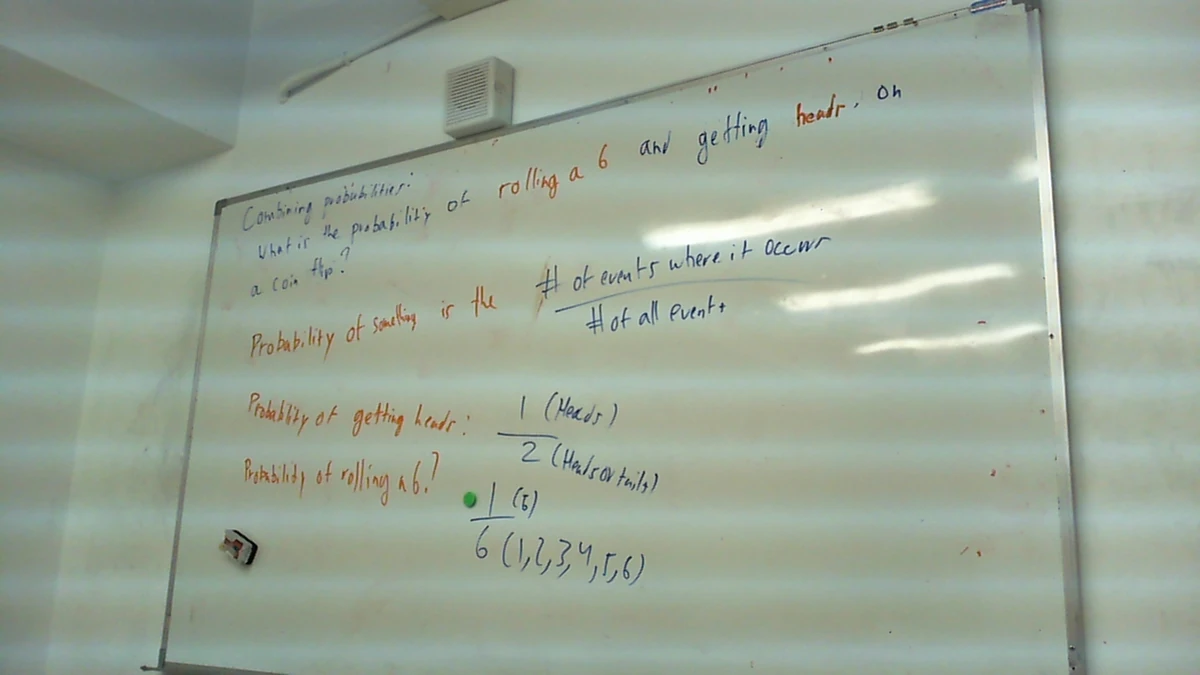 Combining probabilities:
What is the probability of rolling a 6 and getting heads. on
a coin flip?
Probability of something is the # of events where it occurs
# of all events
Probablity of getting heads: 1 (Heads)
2 (Heads or tails)
Probability of rolling a 6? 1 (6)
6 (1,2,3,4,5,6)